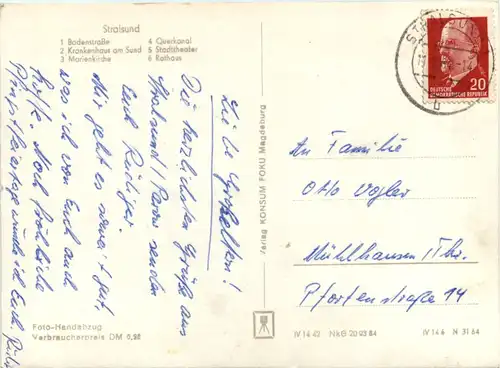 Stralsund
1 Badenstraße
2 Krankenhaus am Sund
3 Marienkirche
4 Querkanal
5 Stadttheater
6 Rathaus
Liebe Großeltern!
Die herzlichsten Grüße aus
Stralsund senden
Euch Rüdiger.
Mir geht es soweit gut
was ich von Euch auch
hoffe. Noch fröhliche
Pfingstfeiertage wünscht Euch
Foto-Handabzug
Verbraucherpreis DM 0,98
Verlag KONSUM FOKU Magdeburg
DEUTSCHE
DEMOKRATISCHE REPUBLIK
20
An Familie
Otto Vogler
Mühlhausen Thr.
Pfortenstraße 14
IV 14 42 NkG 20 23 64
IV 14 6 N 31 64